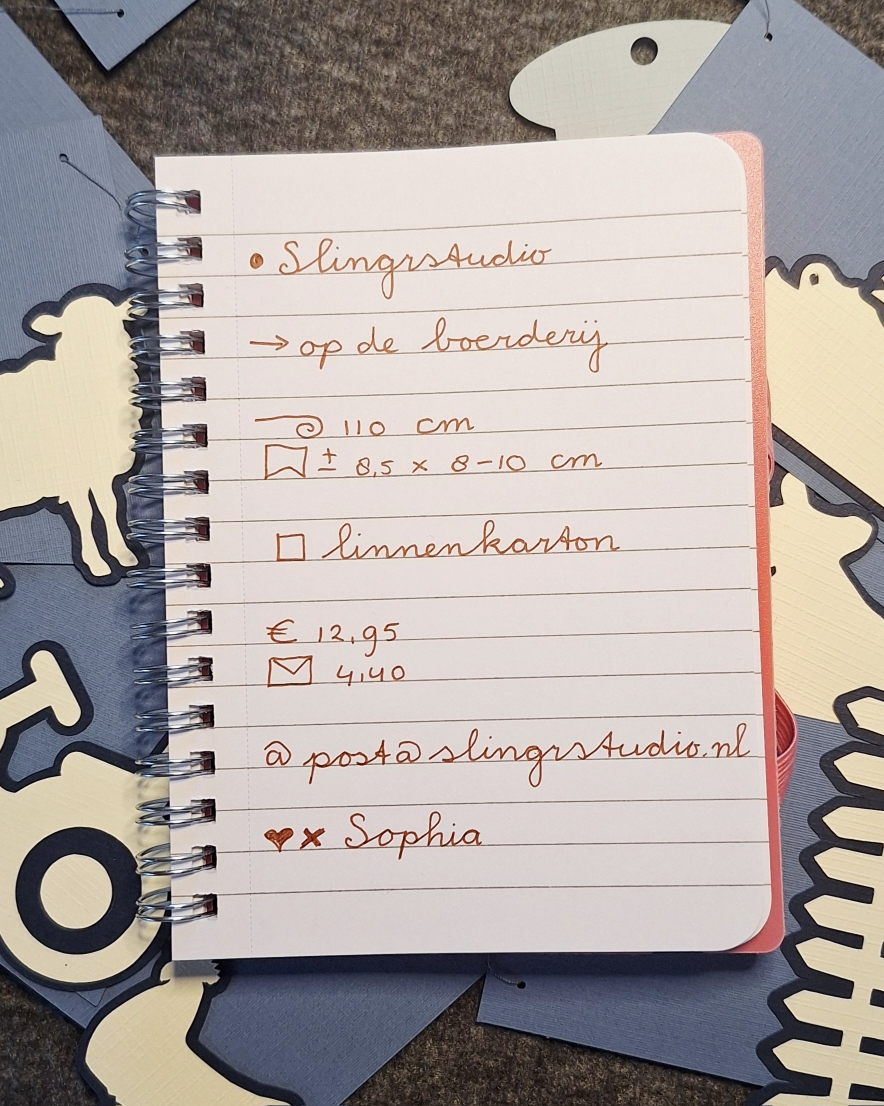 • Slingrstudio
→ op de boerderij
110 cm
± 8,5 x 8-10 cm
□ linnenkarton
€ 12,95
4,40
@ post@slingrstudio.nl
♥x Sophia